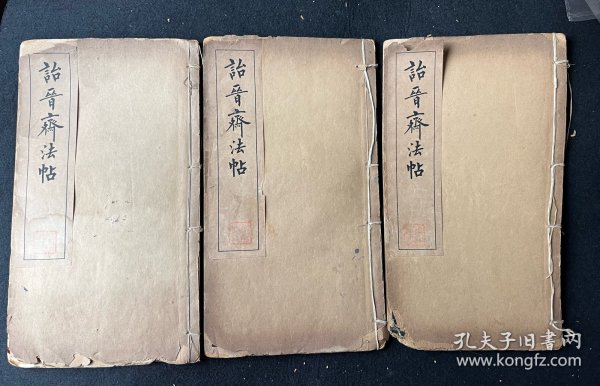 詒晉齋法帖
詒晉齋法帖
詒晉齋法帖
孔夫子旧書网
www.kongfz.com